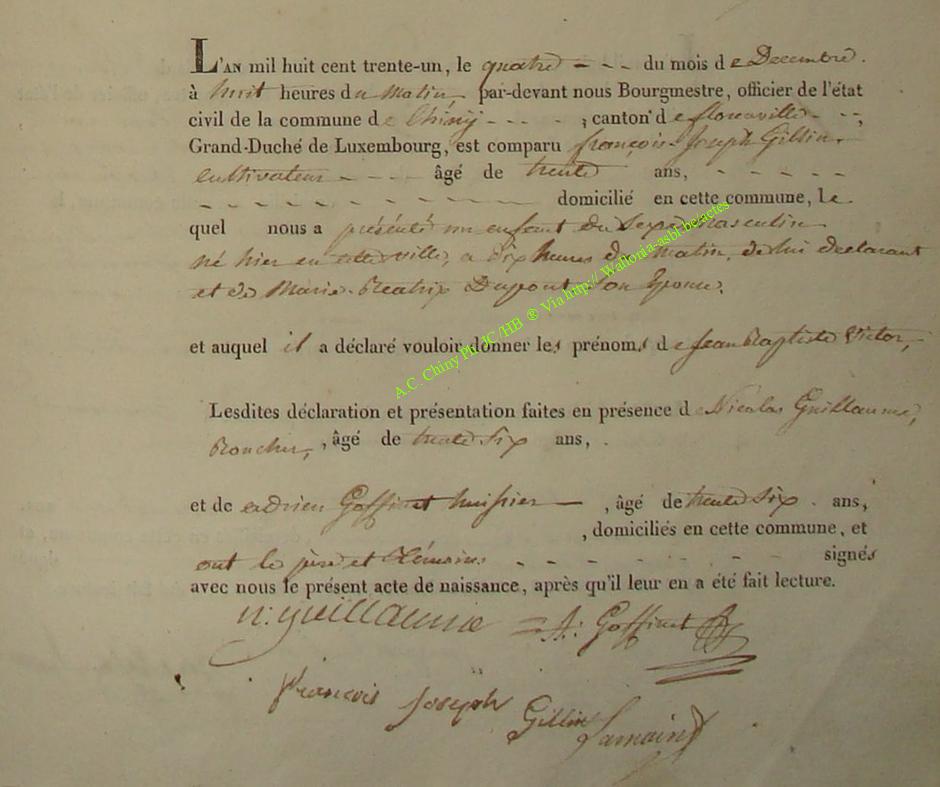 L'AN mil huit cent trente-un, le quatre - - - du mois de Decembre.
à huit heures du Matin, par-devant nous Bourgmestre, officier de l'état
civil de la commune de Chiny - - - - , canton de florenville - - ,
Grand-Duché de Luxembourg, est comparu françois-Joseph Gillin.
cultivateur - - - - âgé de trente ans, - - - - -
- - - - - - - - - - - domicilié en cette commune, Le
quel nous a présenté un enfant du Sexe Masculin
né hier en cette ville, a dix heures du matin, de lui declarant
et de Marie-Beatrix Dupont Son Epouse.
et auquel il a déclaré vouloir donner les prénoms de Jean Baptiste Victor,
Lesdites déclaration et présentation faites en présence de Nicolas Guillaume,
, âgé de trente Six ans, .
et de adrien Goffinet huissier — , âgé de trente Six . ans,
, domiciliés en cette commune, et
ont le père et témoins - - - - - - - signés
avec nous le présent acte de naissance, après qu'il leur en a été fait lecture.
n. guillaume A: Goffinet
françois Joseph Gillin
A.C. Chiny Ph JC/HB ® Via http:// Wallonia-asbl-be/actes